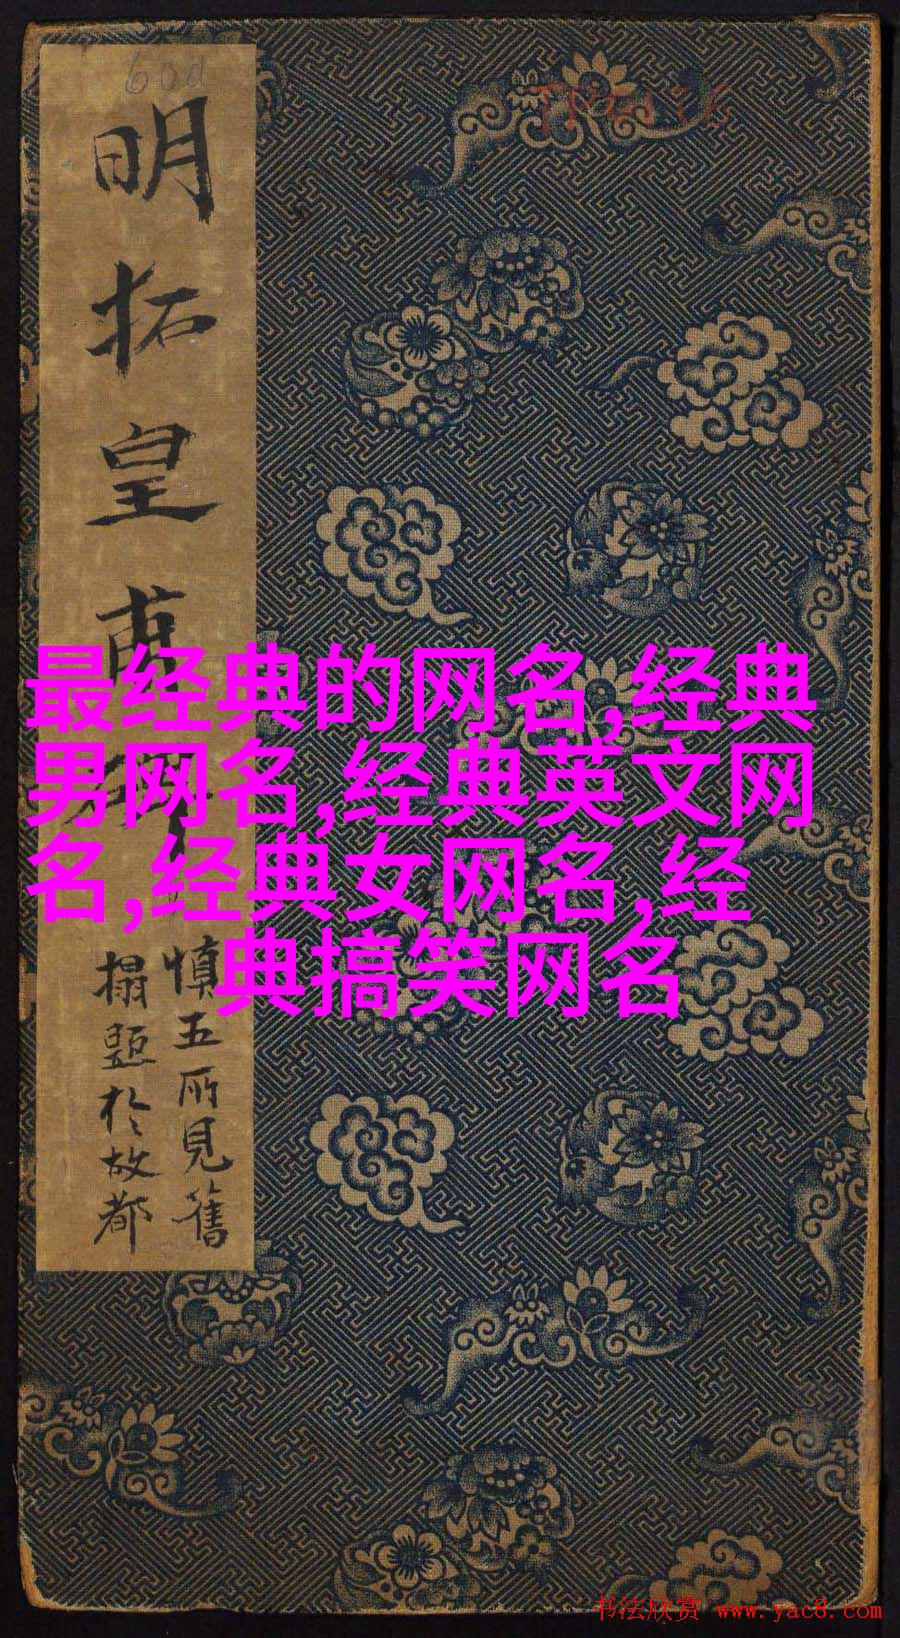 600
明拓皇甫
慎五所見舊
搨題於故都
最经典的网名,经典
男网名,经典英文网
名,经典女网名,经
典搞笑网名
书法欣赏 www.yac8.com